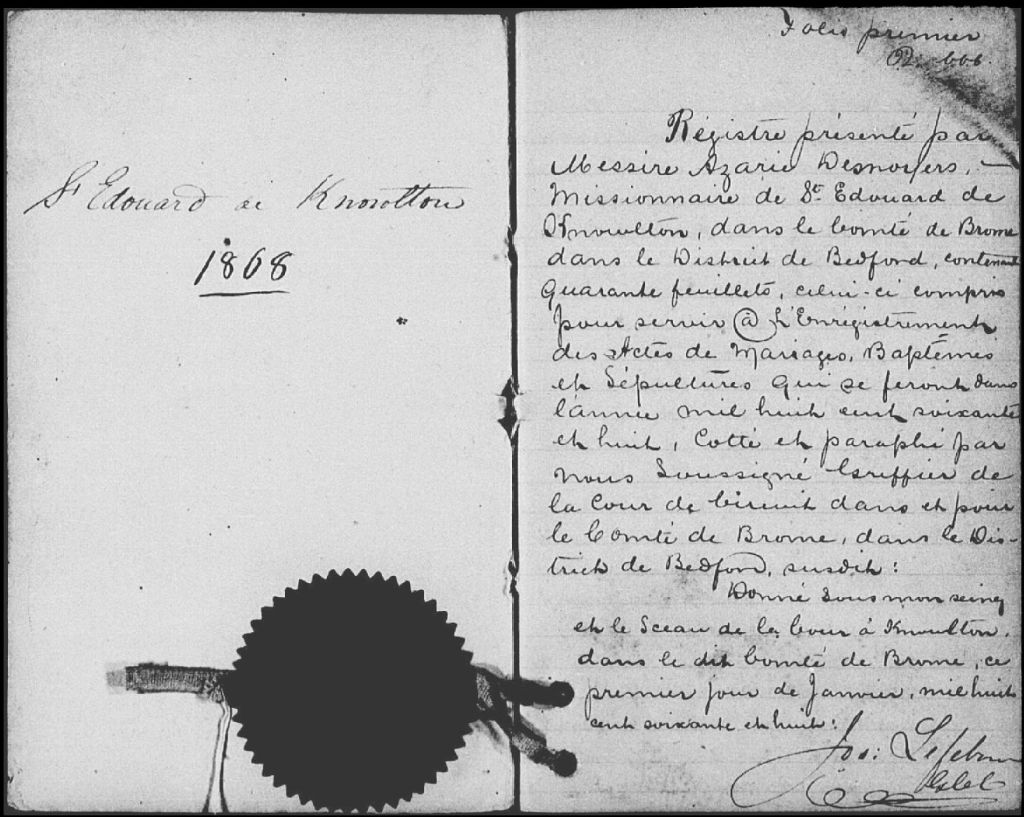 St Edouard de Knowlton
1868
Folio premier
Régistre présenté par
Messire Azarie Desnoyers, —
Missionnaire de St Edouard de
Knowlton, dans le Comté de Brome
dans le District de Bedford, contenant
Quarante feuillets, celui-ci compris
pour servir @ L'Enrégistrement
des Actes de Mariages, Baptêmes
et Sépultures qui se feront dans
l'année mil huit cent soixante
et huit, Cotté et paraphé par
nous Soussigné Greffier de
la Cour de Circuit dans et pour
le Comté de Brome, dans le Dis-
trict de Bedford, susdit:
Donné Sous mon seing
et le Sceau de la Cour à Knowlton,
dans le dit Comté de Brome, ce
premier jour de Janvier, mil huit
cent soixante et huit:
Jos: Lefebvre